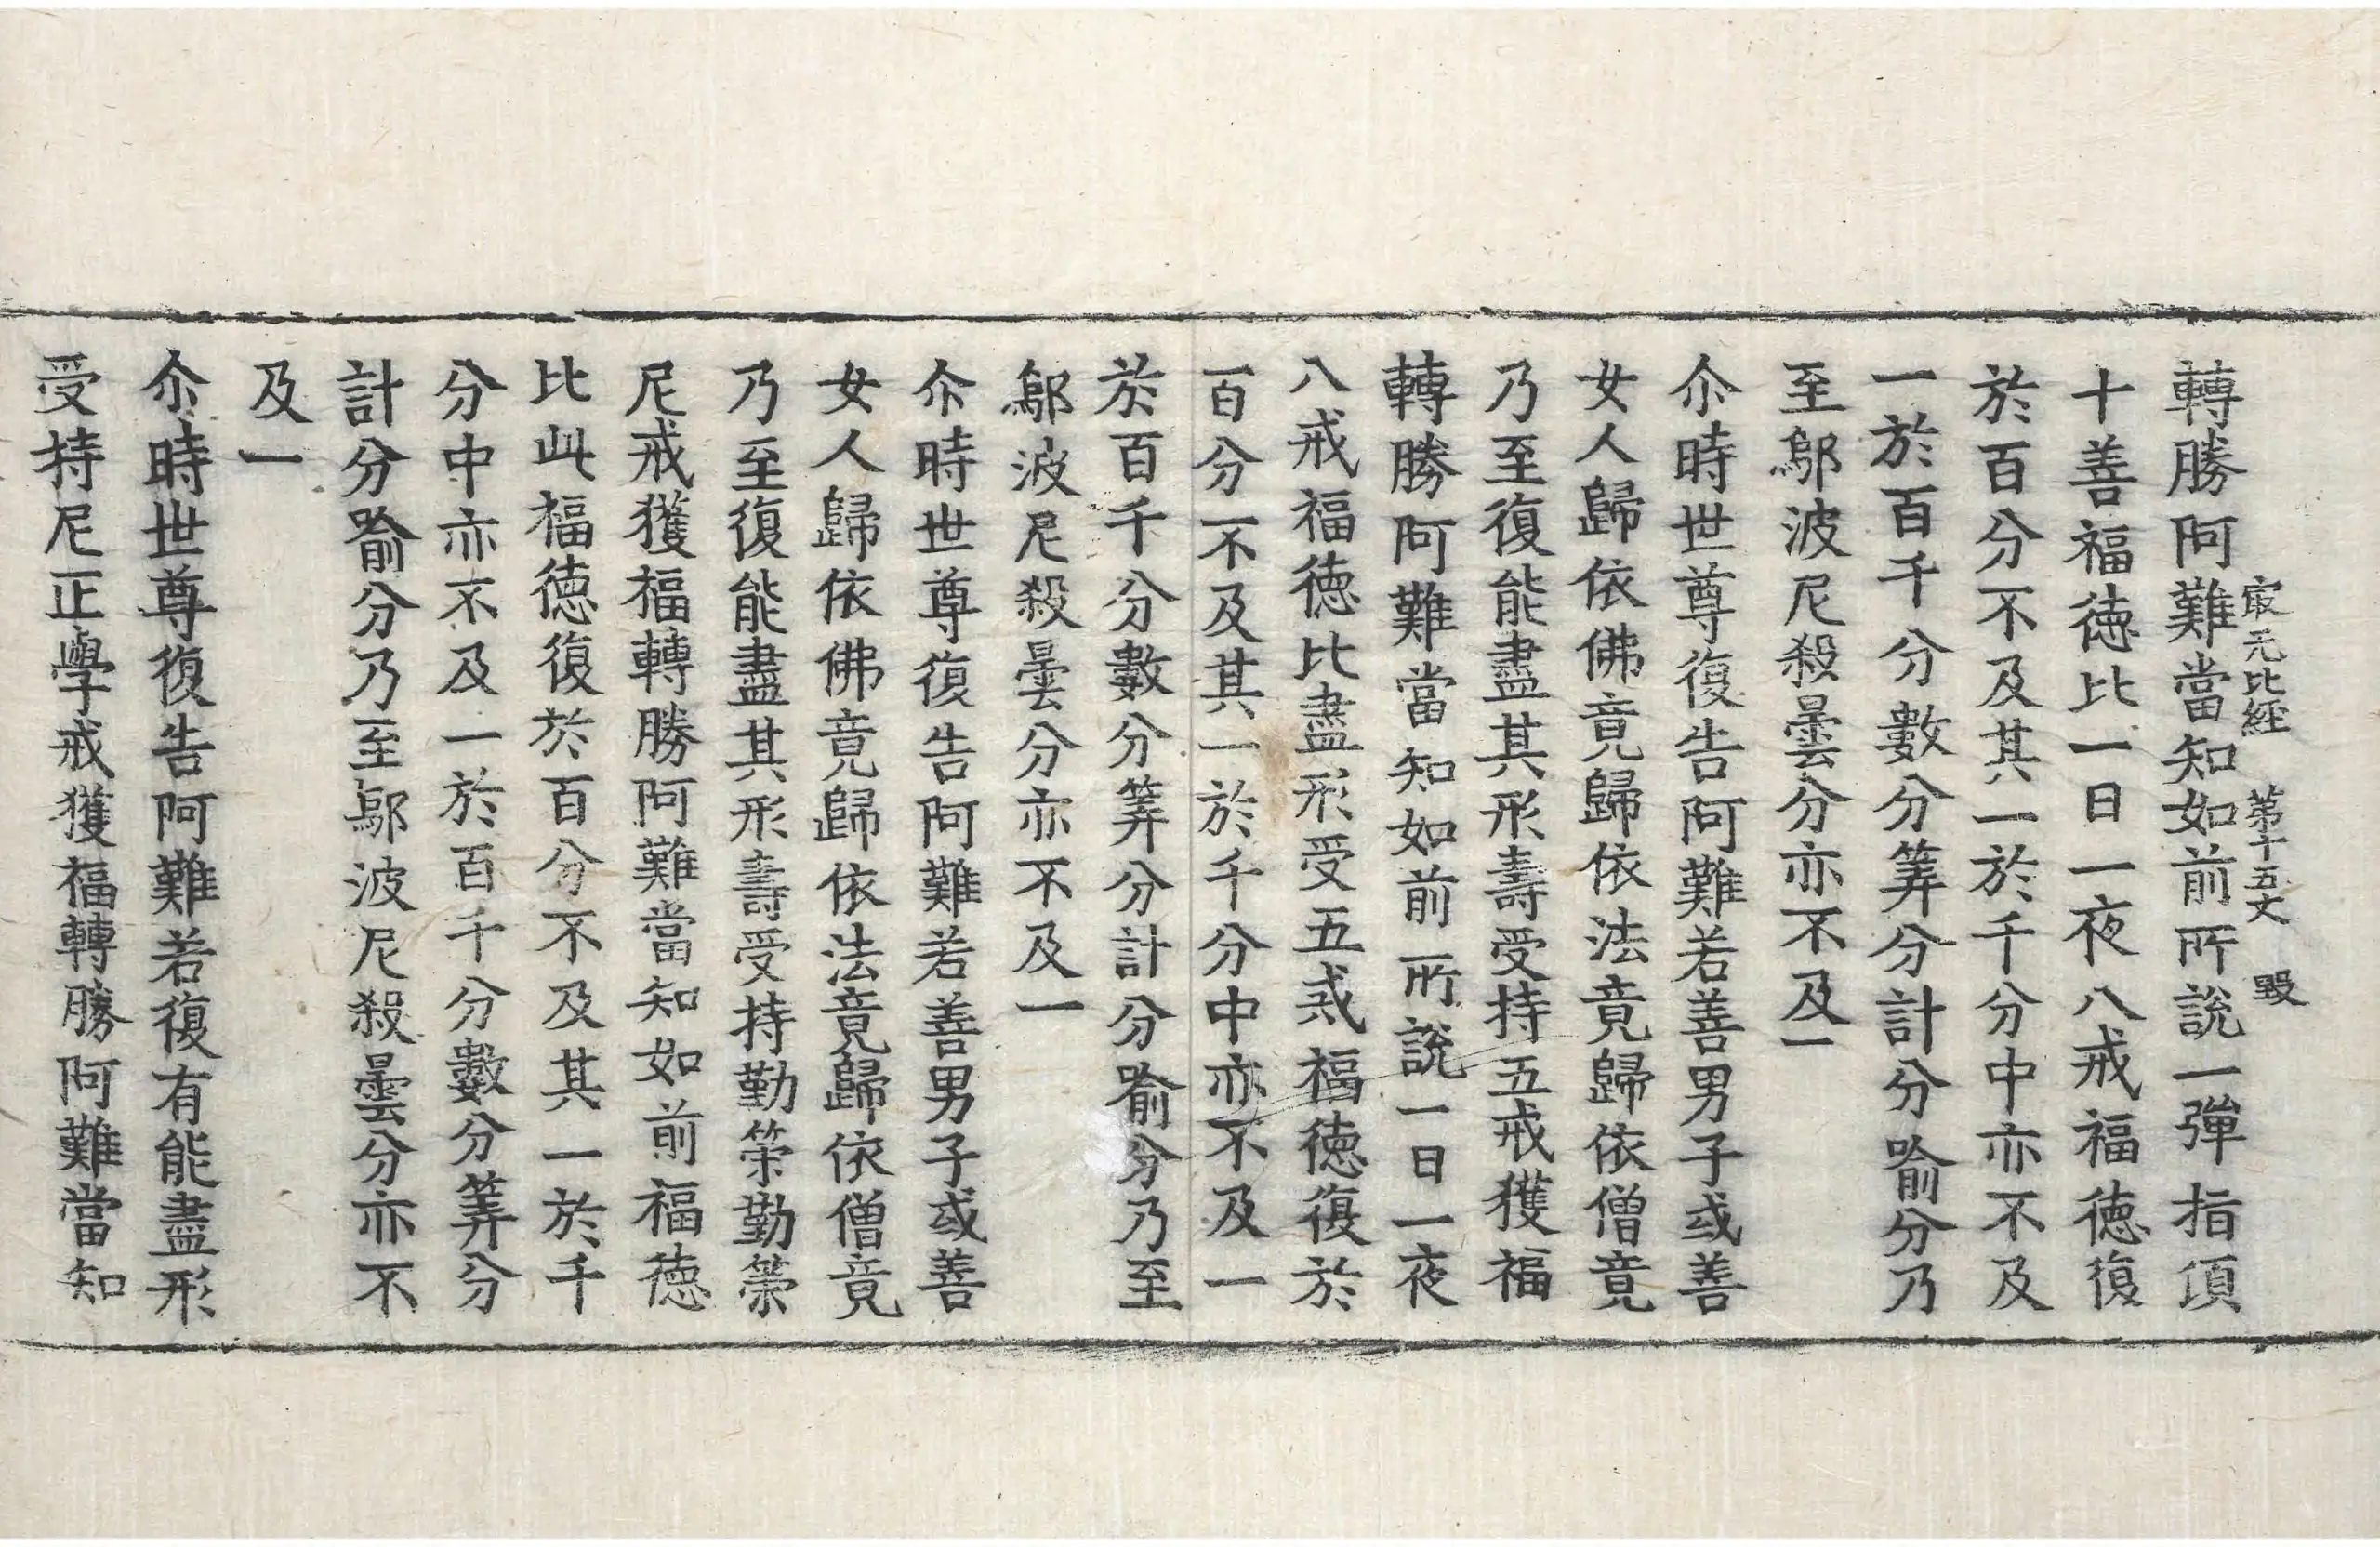 㝡无比經 第十五丈 毀
轉勝阿難當知如前所說一彈指頃
十善福德比一日一夜八戒福德復
於百分不及其一於千分中亦不及
一於百千分數分筭分計分喻分乃
至鄔波尼殺曇分亦不及一
尒時世尊復告阿難若善男子或善
女人歸依佛竟歸依法竟歸依僧竟
乃至復能盡其形壽受持五戒獲福
轉勝阿難當知如前所說一日一夜
八戒福德比盡形受五戒福德復於
百分不及其一於千分中亦不及一
於百千分數分筭分計分喻分乃至
鄔波尼殺曇分亦不及一
尒時世尊復告阿難若善男子或善
女人歸依佛竟歸依法竟歸依僧竟
乃至復能盡其形壽受持勤策勤策
尼戒獲福轉勝阿難當知如前福德
比此福德復於百分不及其一於千
分中亦不及一於百千分數分筭分
計分喻分乃至鄔波尼殺曇分亦不
及一
尒時世尊復告阿難若復有能盡形
受持尼正學戒獲福轉勝阿難當知